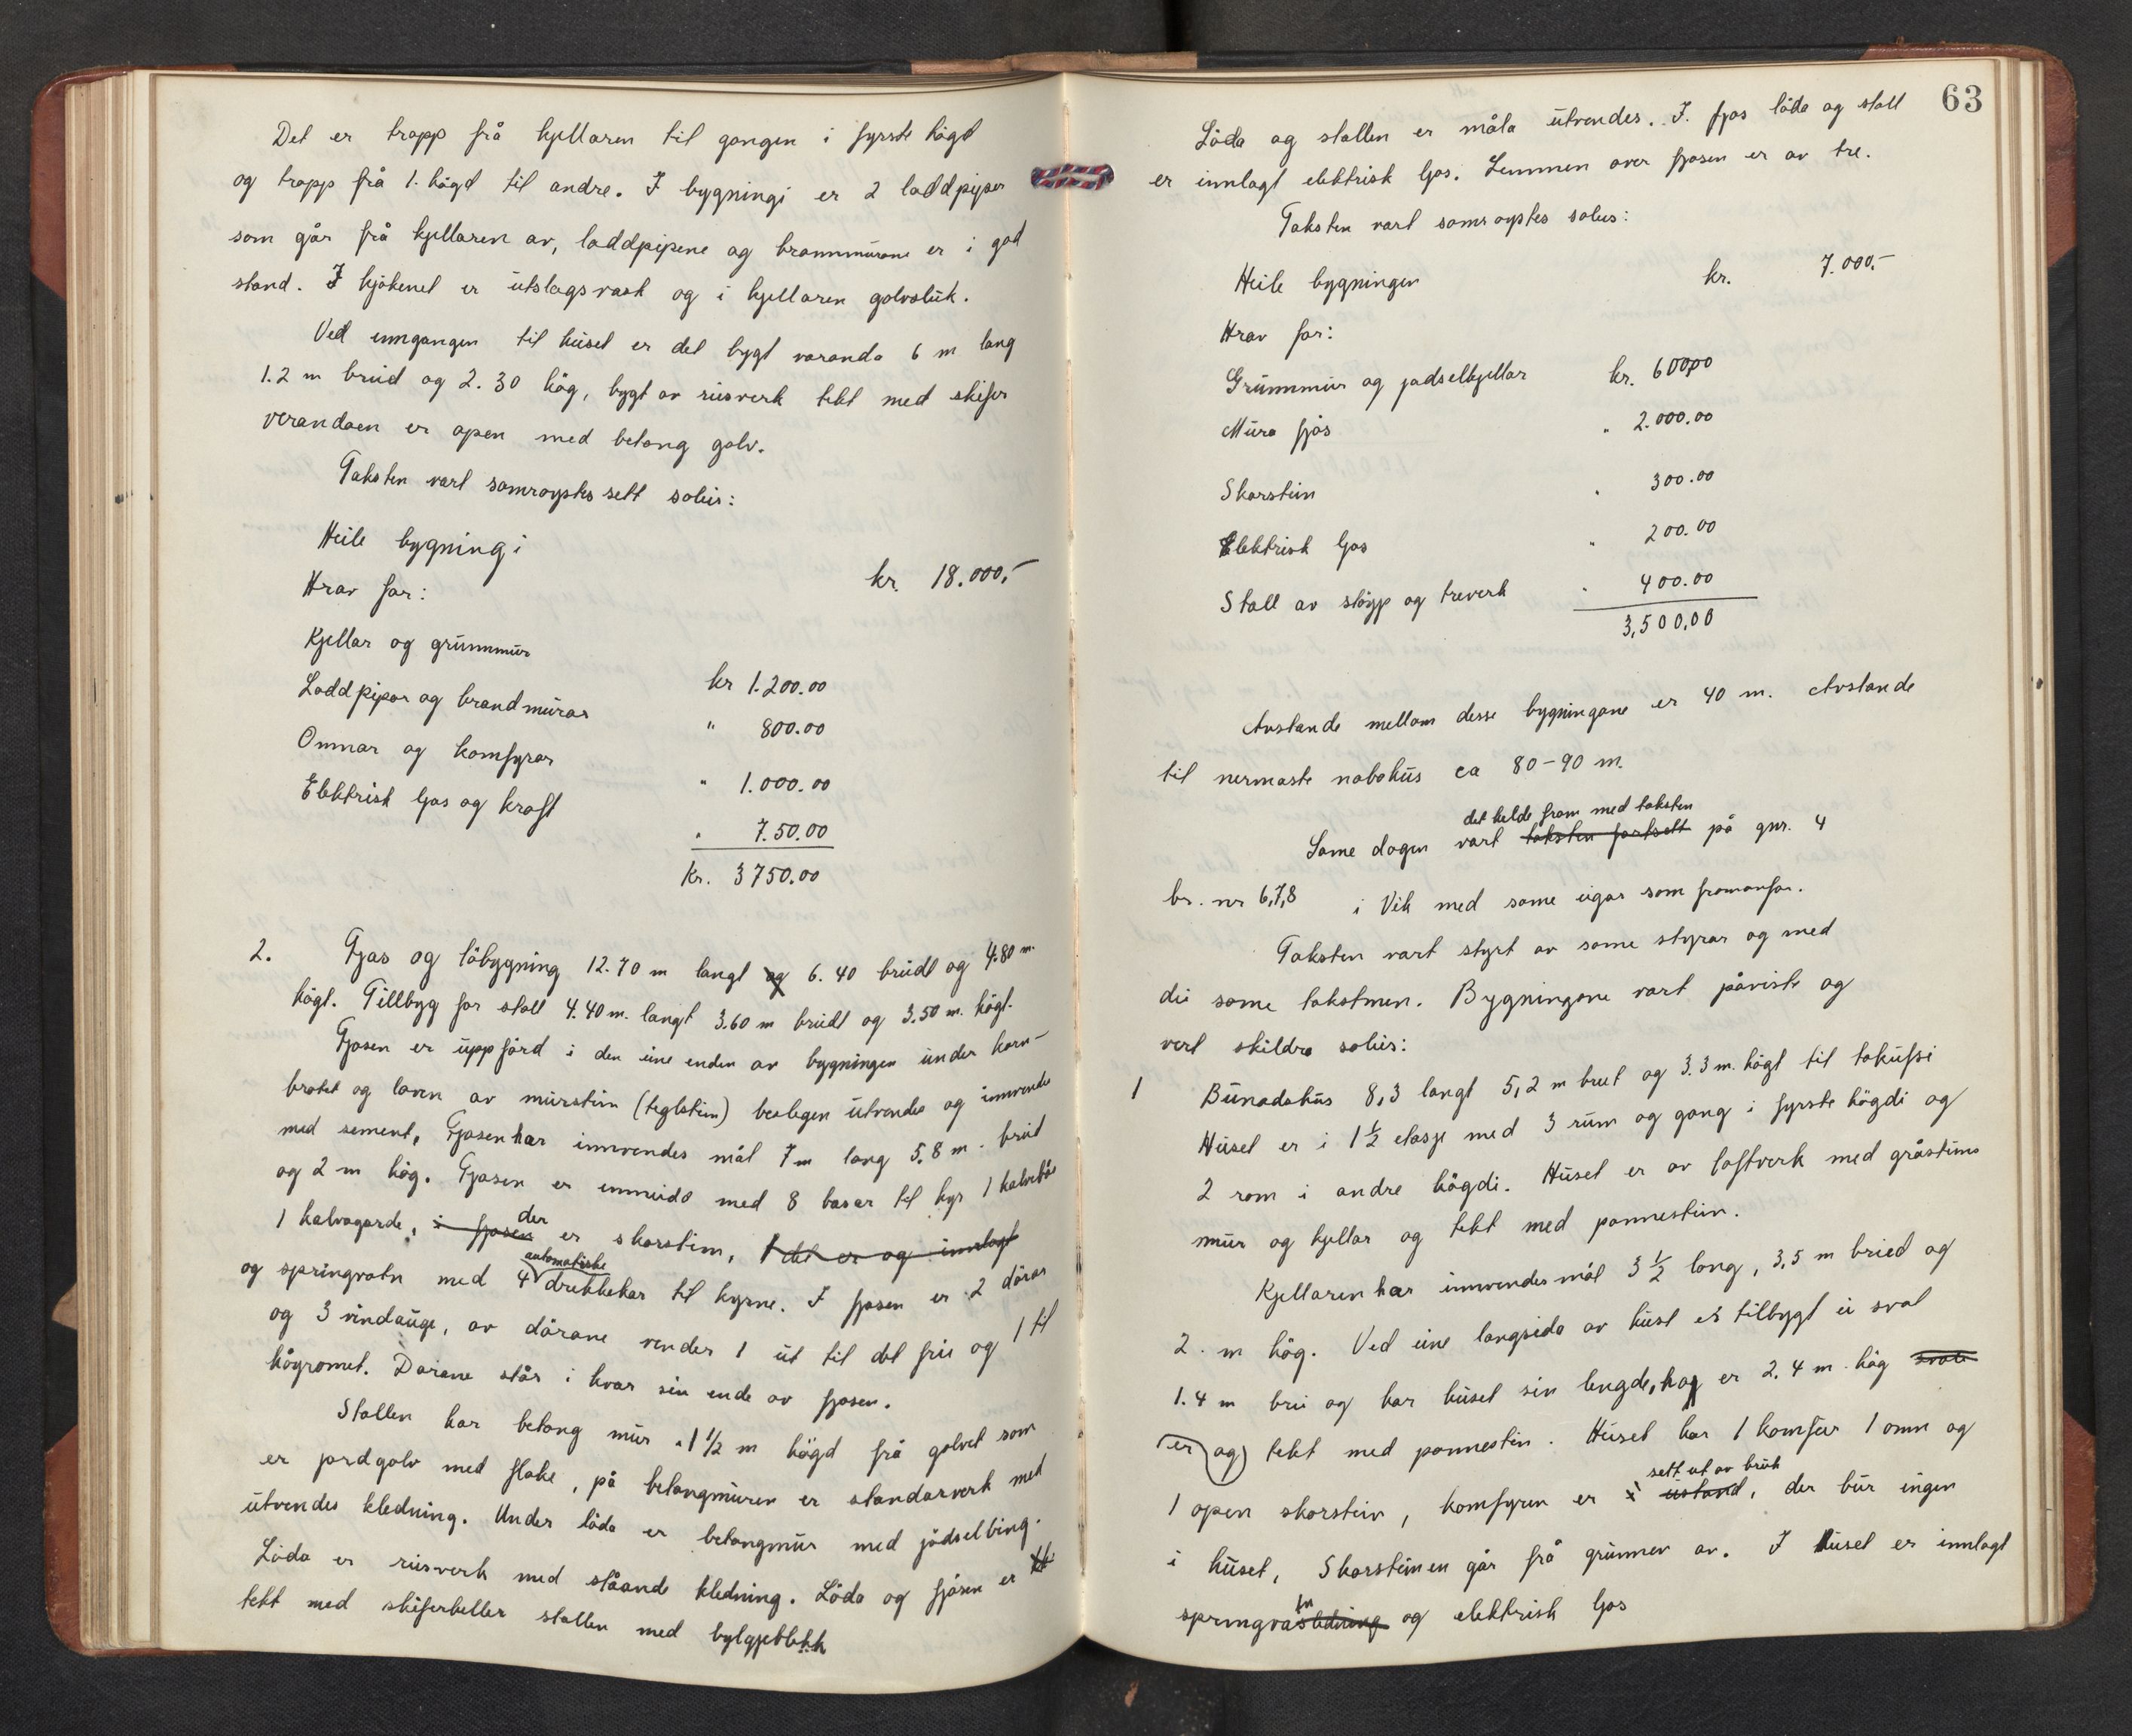 Det er trapp frå kjellaren til gangen i fyrste høgd
og trapp frå 1. høgd til andre. I bygningi er 2 loddpipor
som går frå kjellaren av, loddpipene og brannmurane er i god
stand. I kjøkenet er utslagsvask og i kjellaren golvsluk.
Ved inngangen til huset er det bygt varanda 6 m lang
1.2 m breid og 2.30 høg, bygt av reisverk tekt med skifer
verandaen er open med betong golv.
Taksten vart samrøystes sett soleis:
Heile bygningi
kr. 18.000,-
Krav for:
Kjellar og grunnmur kr 1.200.00
Loddpipor og brandmurar " 800.00
Omnar og komfyrar " 1.000.00
Elektrisk ljos og kraft " 7.50.00
Kr. 3750.00
2. Fjos og löbygning 12.70 m langt og 6.40 breidt og 4.80 m.
högt. Tillbyg for stall 4.40 m. langt 3.60 m breidt og 3.50 m. högt.
Fjosen er uppförd i den eine enden av bygningen under korn-
brotet og loven av murstein (teglstein) beslegen utvendes og innvendes
med sement, Fjosen har innvendes mål 7 m lang 5.8 m. breid
og 2 m høg. Fjosen er innreida med 8 basar til kyr 1 kalvebås
1 kalvagarde, i fjosen der er skorstein, det er og innlagt
og springvatn med 4 automatiske drekkekar til kyrne. I fjosen er 2 dörar
og 3 vindauge, av dörane vender 1 ut til det frie og 1 til
høyromet. Dørane står i kvar sin ende av fjosen.
Stallen har betong mur 1 1/2 m högd frå golvet som
er jordgolv med flake, på betongmuren er standarverk med
utvendes kledning. Under löda er betongmur med jödselbing.
Löda er reisverk med ståande kledning. Löda og fjosen er
tekt med skiferheller stallen med bylgjeblekk
63
Löda og stallen er måla utvendes. I fjos löda og stall
er innlagt elektrisk ljos. Lemmen over fjosen er av tre.
Taksten vart samrøystes soleis:
Heile bygningen kr. 7.000.-
Krav for:
Grunnmur og jødselkjellar kr. 600,00
Mura fjøs " 2.000.00
Skorstein " 300.00
Elektrisk ljos " 200.00
Stall av støyp og treverk " 400.00
3,500,00
Avstande mellom desse bygningane er 40 m. Avstande
til nermaste nabohus ca 80-90 m.
det helde fram med taksten
Same dagen vart taksten fortsett på gnr. 4
br. nr 6,7,8 i Vik med same eigar som framanfor.
Taksten vart styrt av same styrar og med
dei same takstmen. Bygningane vart påviste og
vert skildra soleis:
1 Bunadshus 8,3 langt 5,2 m breit og 3.3 m. högt til takufsi
Huset er i 1 1/2 etasje med 3 rum og gang i fyrste högdi og
2 rom i andre högdi. Huset er av laftverk med gråsteins
mur og kjellar og tekt med pannestein.
Kjellaren har innvendes mål 3 1/2 lang, 3,5 m bried og
2. m høg. Ved eine langsida av huset er tilbygt ei sval
1.4 m brei og har huset sin lengde, er 2.4 m. høg svale
er og tekt med pannestein. Huset har 1 komfyr 1 omn og
sett ut av bruk
1 open skorstein, komfyren er i ustand, der bur ingen
i huset, Skorsteinen går frå grunnen av. I Huset er innlagt
springvatn og elektrisk ljos